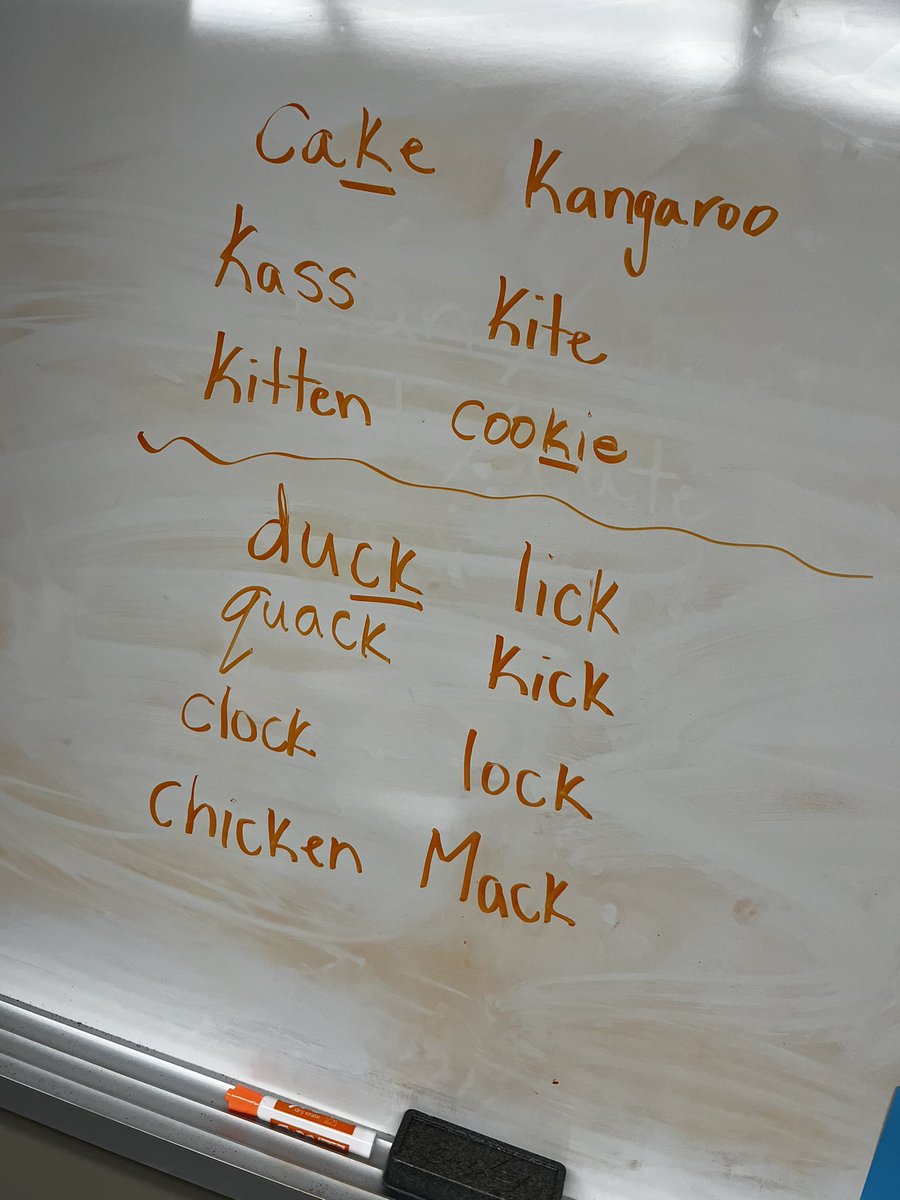 Cake Kangaroo
Kass Kite
Kitten cookie
duck lick
quack Kick
clock lock
chicken Mack
dry erase